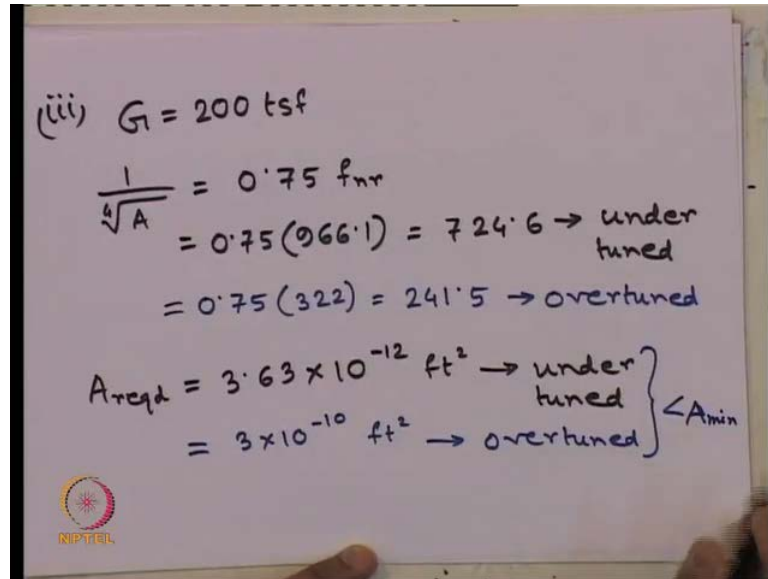 (iii) G = 200 tsf
1/∜A = 0.75 fnr
= 0.75(966.1) = 724.6 → under tuned
= 0.75(322) = 241.5 → overtuned
Areqd = 3.63 × 10⁻¹² ft² → under tuned
= 3×10⁻¹⁰ ft² → overtuned } <Amin
NPTEL